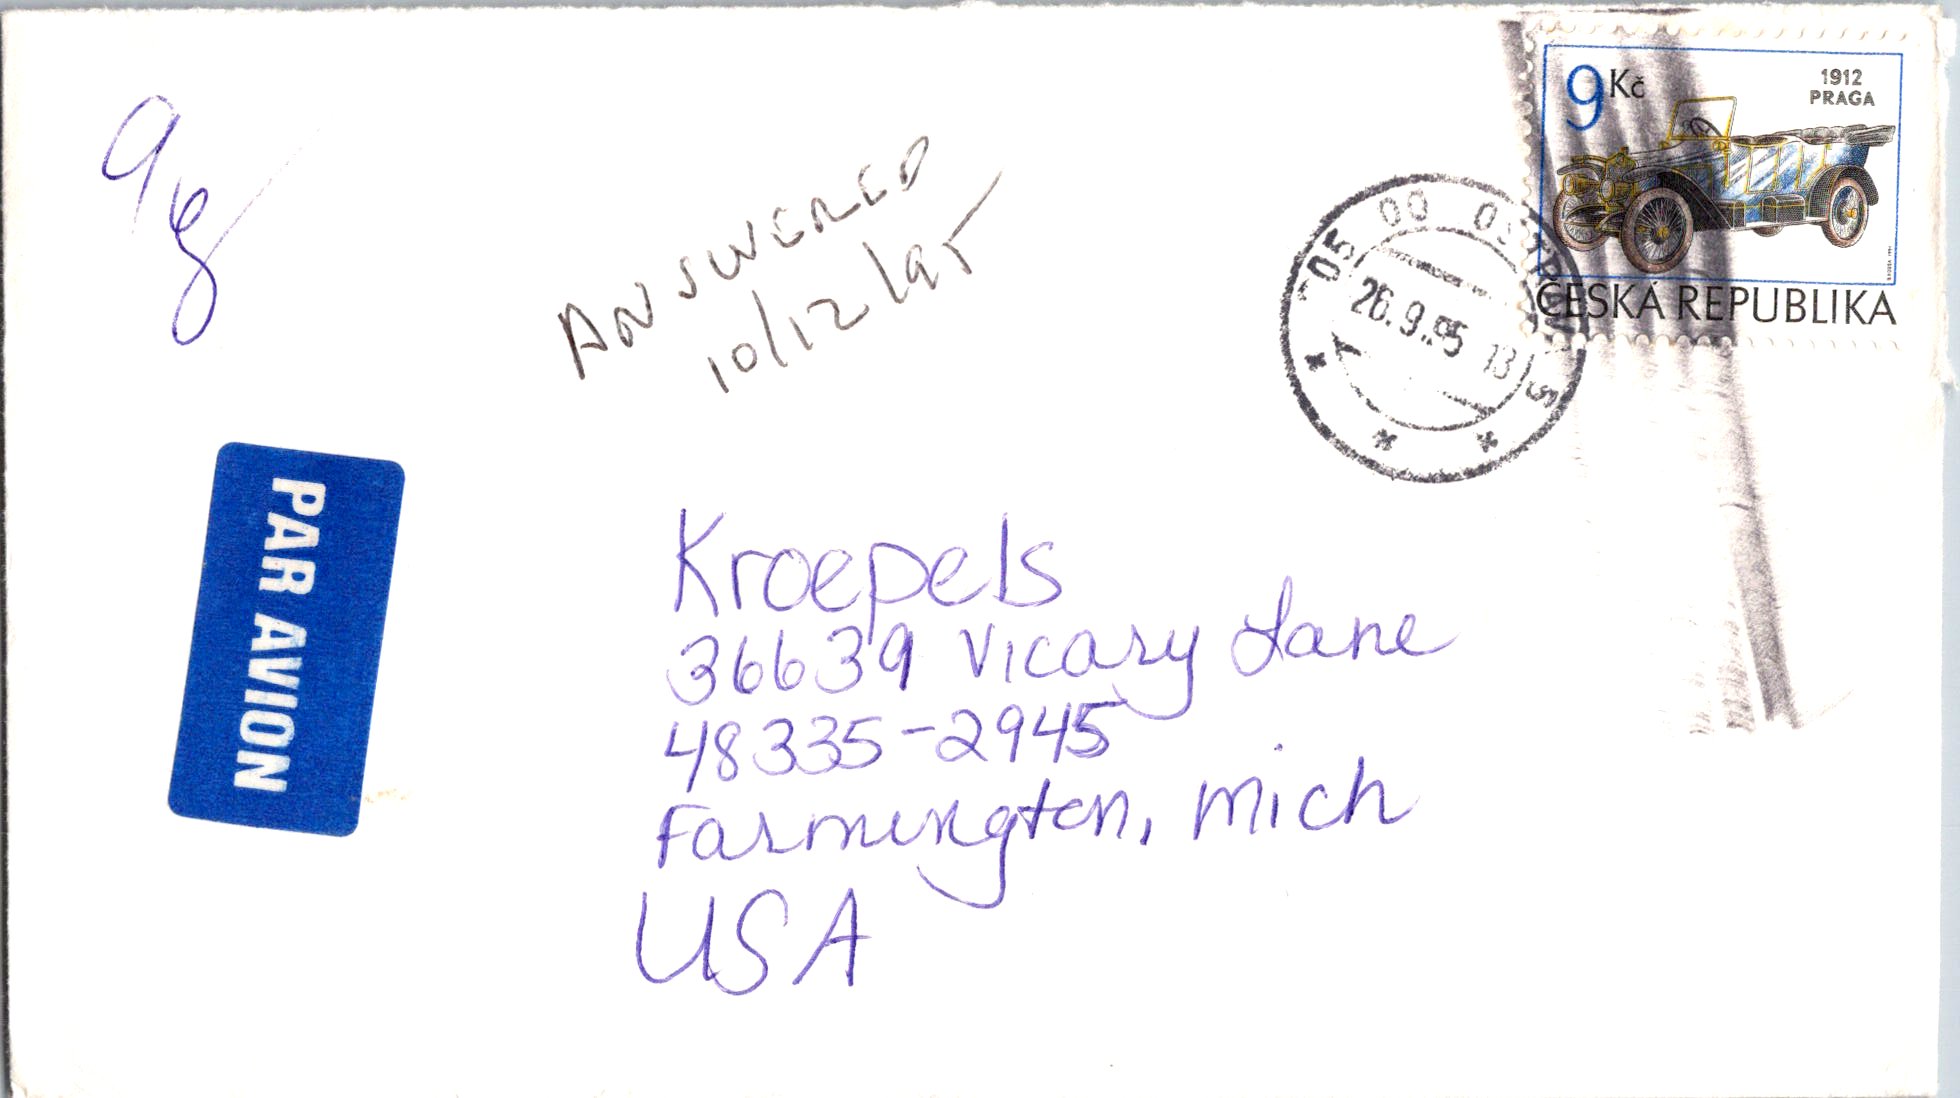 9 Kč
1912
PRAGA
ČESKÁ REPUBLIKA
705 00 OSTRAVA 5
26.9.95 13
ANSWERED
10/12/95
PAR AVION
Kroepels
36639 Vicary Lane
48335-2945
Farmington, Mich
USA